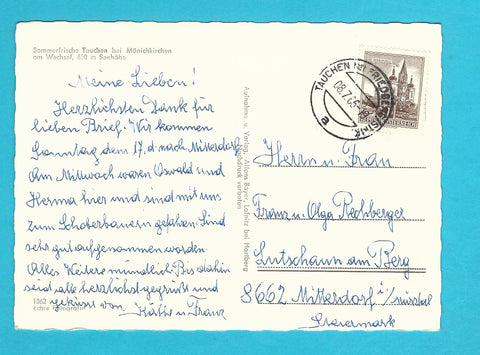 Sommerfrische Tauchen bei Mönichkirchen
am Wechsel, 850 m Seehöhe
Meine Lieben!
Herzlichsten Dank für
lieben Brief. Wir kommen
Sonntag dem 17. d. nach Mitterdorf.
Am Mittwoch waren Oswald und
Herma hier und sind mit uns
zum Schoberbauern gefahren. Sind
sehr gut aufgenommen worden.
Alles Weitere mündlich. Bis dahin
seid alle herzlichst gegrüßt und
geküsst von Käthe u. Franz
1062
Echte Fotografie
Aufnahme u. Verlag Alfons Bayer, Lafnitz bei Hartberg
Nachdruck verboten
TAUCHEN bei FRIEDBERG, STMK.
08.7.65
a
ÖSTERREICH
Herrn u. Frau
Franz u. Olga Rechberger
Lutschaun am Berg
8662 Mitterdorf i/mürztal
Steiermark